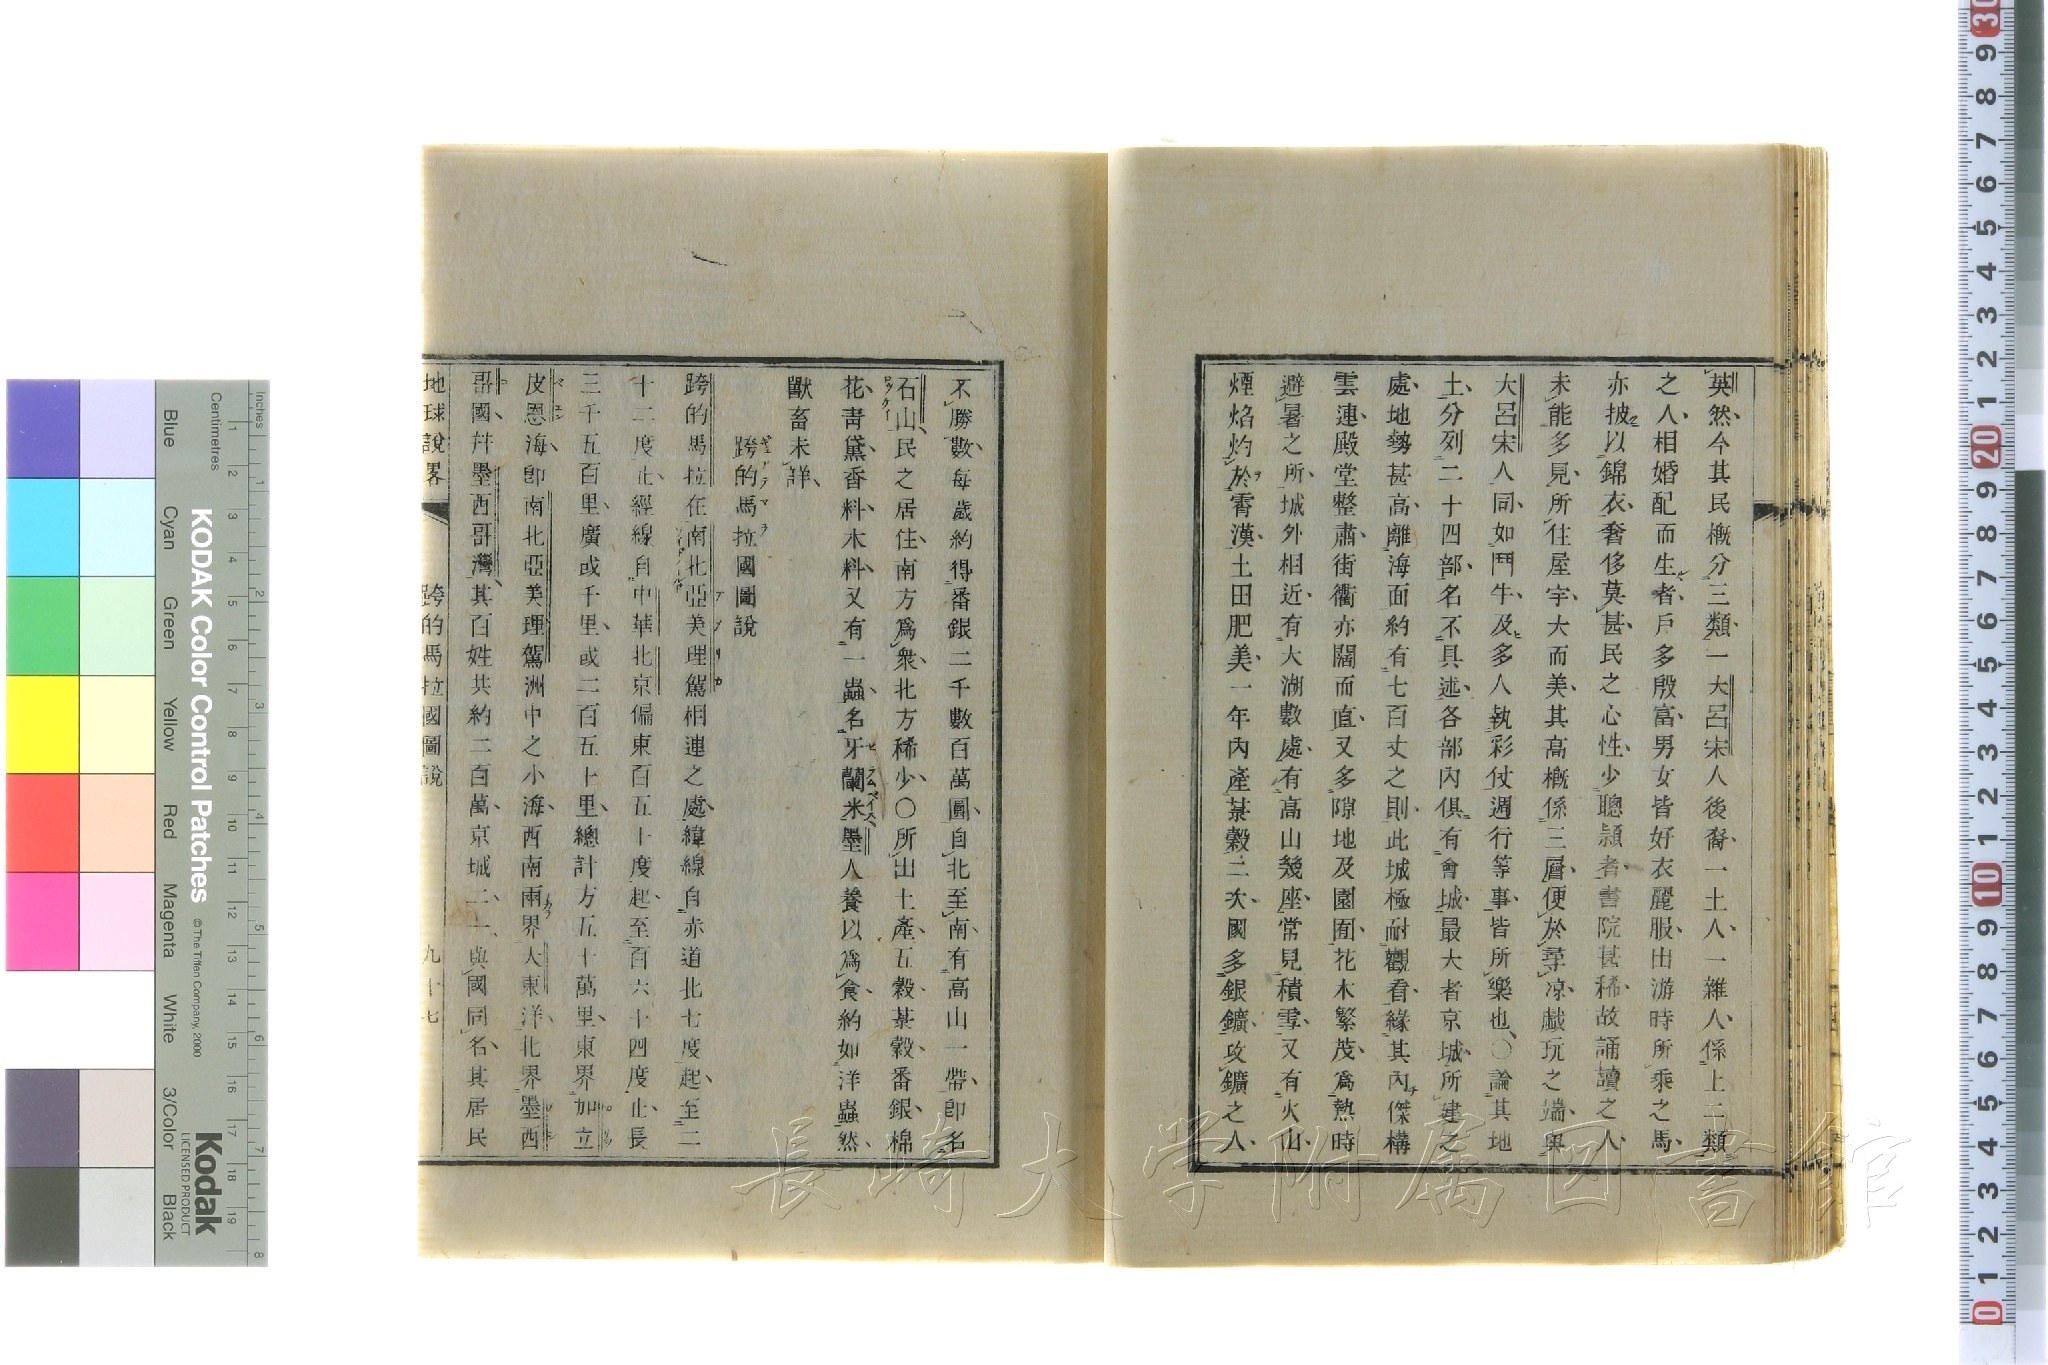 英然今其民概分三類一大呂宋人後裔一土人一雜人係上二類
之人相婚配而生者戶多殷富男女皆好衣麗服出游時所乘之馬
亦披以錦衣奢侈莫甚民之心性少聰頴者書院甚稀故誦讀之人
未能多見所住屋宇大而美其高概係三層便於尋凉戱玩之端與
大呂宋人同如鬥牛及多人執彩仗週行等事皆所樂也〇論其地
土分列二十四部名不具述各部內俱有會城最大者京城所建之
處地勢甚高離海面約有七百丈之則此城極耐觀看緣其內傑構
雲連殿堂整肅街衢亦闊而直又多隙地及園囿花木繁茂爲熱時
避暑之所城外相近有大湖數處有高山幾座常見積雪又有火山
煙焰灼於霄漢土田肥美一年內產菉穀二次國多銀鑛攻鑛之人
不勝數每歲約得番銀二千數百萬圓自北至南有高山一帶卽名
石山民之居住南方爲衆北方稀少〇所出土產五穀菉穀番銀棉
花靑黛香料木料又有一蟲名牙蘭米墨人養以爲食約如洋蟲然
獸畜未詳
跨的馬拉國圖說
跨的馬拉在南北亞美理駕相連之處緯線自赤道北七度起至二
十二度止經線自中華北京偏東百五十度起至百六十四度止長
三千五百里廣或千里或二百五十里總計方五十萬里東界加立
皮恩海卽南北亞美理駕洲中之小海西南兩界大東洋北界墨西
哥國幷墨西哥灣其百姓共約二百萬京城二一與國同名其居民
地球說畧 跨的馬拉國圖說 九十七
長崎大学附属図書館
KODAK Color Control Patches
© The Tiffen Company, 2000
Kodak
LICENSED PRODUCT
Blue Cyan Green Yellow Red Magenta White 3/Color Black
Inches 1 2 3 4 5 6 7 8
Centimetres 1 2 3 4 5 6 7 8 9 10 11 12 13 14 15 16 17 18 19
30 9 8 7 6 5 4 3 2 1 20 9 8 7 6 5 4 3 2 1 10 9 8 7 6 5 4 3 2 1 0